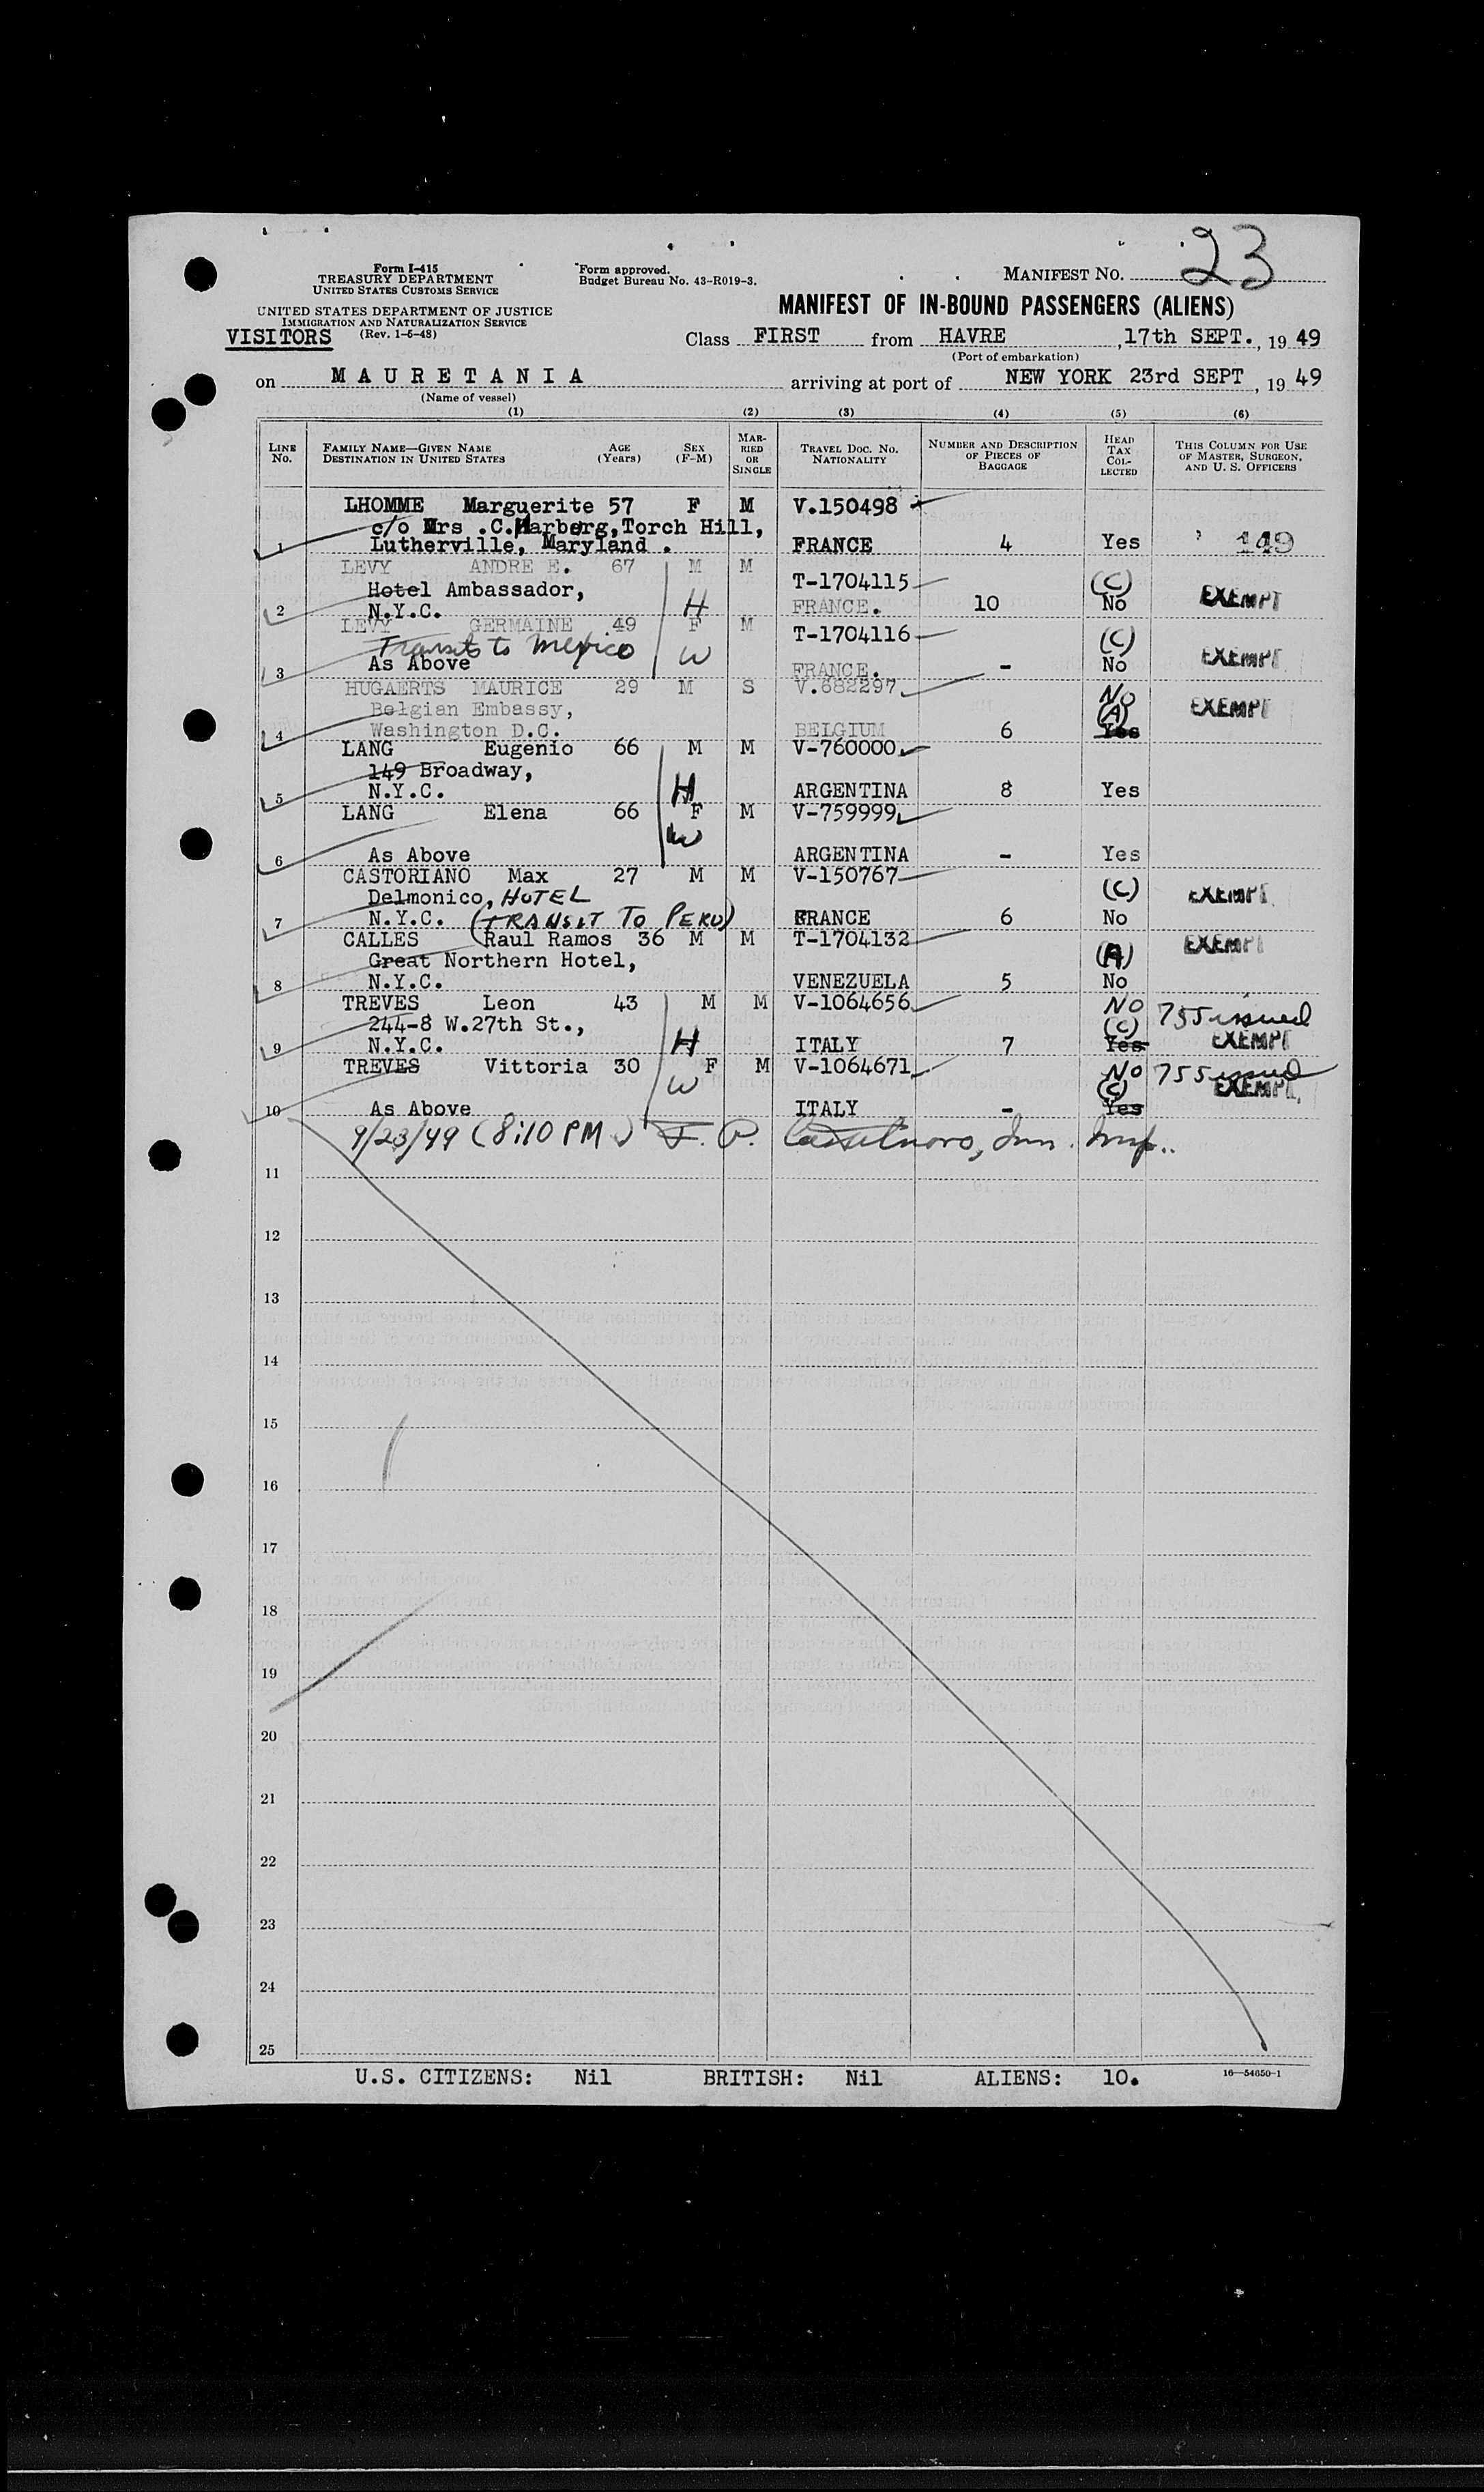 23
Form I-415
TREASURY DEPARTMENT
UNITED STATES CUSTOMS SERVICE
Form approved.
Budget Bureau No. 43-R019-3.
MANIFEST NO.
UNITED STATES DEPARTMENT OF JUSTICE
IMMIGRATION AND NATURALIZATION SERVICE
(Rev. 1-5-48)
VISITORS
MANIFEST OF IN-BOUND PASSENGERS (ALIENS)
Class FIRST from HAVRE, 17th SEPT., 19 49
(Port of embarkation)
on MAURETANIA arriving at port of NEW YORK 23rd SEPT, 19 49
(Name of vessel)
(1) (2) (3) (4) (5) (6)
LINE No. FAMILY NAME—GIVEN NAME DESTINATION IN UNITED STATES AGE (Years) SEX (F-M) MARRIED OR SINGLE TRAVEL DOC. No. NATIONALITY NUMBER AND DESCRIPTION OF PIECES OF BAGGAGE HEAD TAX COLLECTED THIS COLUMN FOR USE OF MASTER, SURGEON, AND U. S. OFFICERS
LHOMME Marguerite 57 F M V.150498
c/o Mrs .C.Marberg,Torch Hill,
1 Lutherville, Maryland . FRANCE 4 Yes 149
LEVY ANDRE E. 67 M M T-1704115
Hotel Ambassador, (C) EXEMPT
2 N.Y.C. H FRANCE. 10 No
LEVY GERMAINE 49 F M T-1704116
Transit to Mexico W (C) EXEMPT
3 As Above FRANCE. - No
HUGAERTS MAURICE 29 M S V.682297 No
Belgian Embassy, (A) EXEMPT
4 Washington D.C. BELGIUM 6 Yes
LANG Eugenio 66 M M V-760000
149 Broadway,
5 N.Y.C. H ARGENTINA 8 Yes
LANG Elena 66 F M V-759999
W
6 As Above ARGENTINA - Yes
CASTORIANO Max 27 M M V-150767
Delmonico, HOTEL (C) EXEMPT
7 N.Y.C. (TRANSIT TO PERU) FRANCE 6 No
CALLES Raul Ramos 36 M M T-1704132 EXEMPT
Great Northern Hotel, (A)
8 N.Y.C. VENEZUELA 5 No
TREVES Leon 43 M M V-1064656 NO 755 issued
244-8 W.27th St., (C)
9 N.Y.C. H ITALY 7 Yes EXEMPT
TREVES Vittoria 30 F M V-1064671 NO 755 issued
W (C) EXEMPT
10 As Above ITALY - Yes
9/23/49 (8:10 PM) F. P. Imm. Insp.
11
12
13
14
15
16
17
18
19
20
21
22
23
24
25
U.S. CITIZENS: Nil BRITISH: Nil ALIENS: 10.
16—54650-1